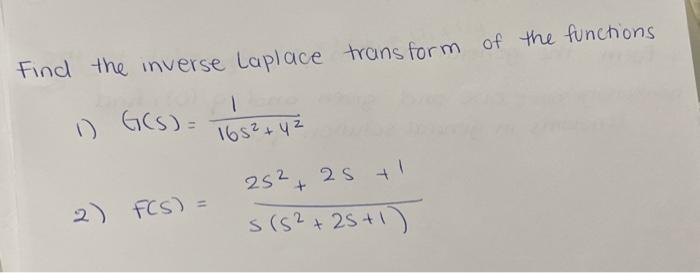 Find the inverse Laplace transform of the functions
1) G(s) = 1 / (16s² + 4²)
2) F(s) = (2s² + 2s + 1) / (s(s² + 2s + 1))